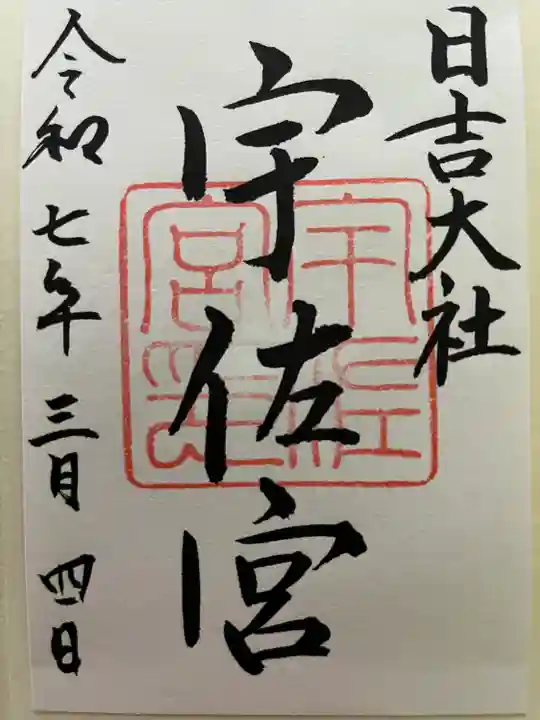 日吉大社
宇佐宮
令和七年三月四日
宇佐
宮印